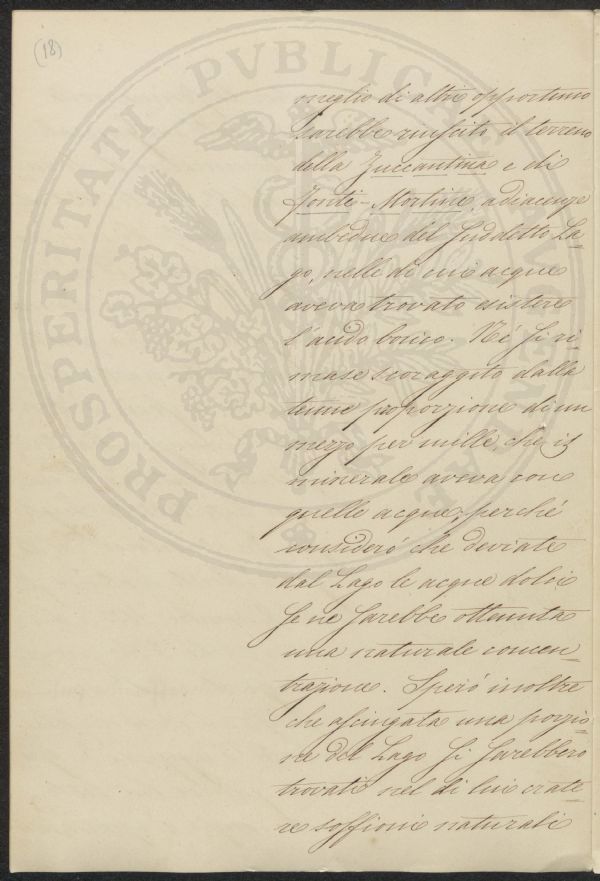 (18)
meglio di altri opportuno
sarebbe riuscito il terreno
della Zuccantina e di
Fonti-Mortine, adiacenze
ambedue del sudetto La-
go, nelle di cui acque
aveva trovato esistere
l'acido borico. Né si ri-
mase scoraggito dalla
tenue proporzione di un
mezzo per mille che il
minerale aveva con
quelle acque, perché
consideró che deviate
dal Lago le acque dolci
se ne sarebbe ottenuta
una naturale concen-
trazione. Speró inoltre
che asciugata una porzio-
ne del Lago si sarebbero
trovati nel di lui crate-
re soffioni naturali
PROSPERITATI PVBLICAE AVGENDAE